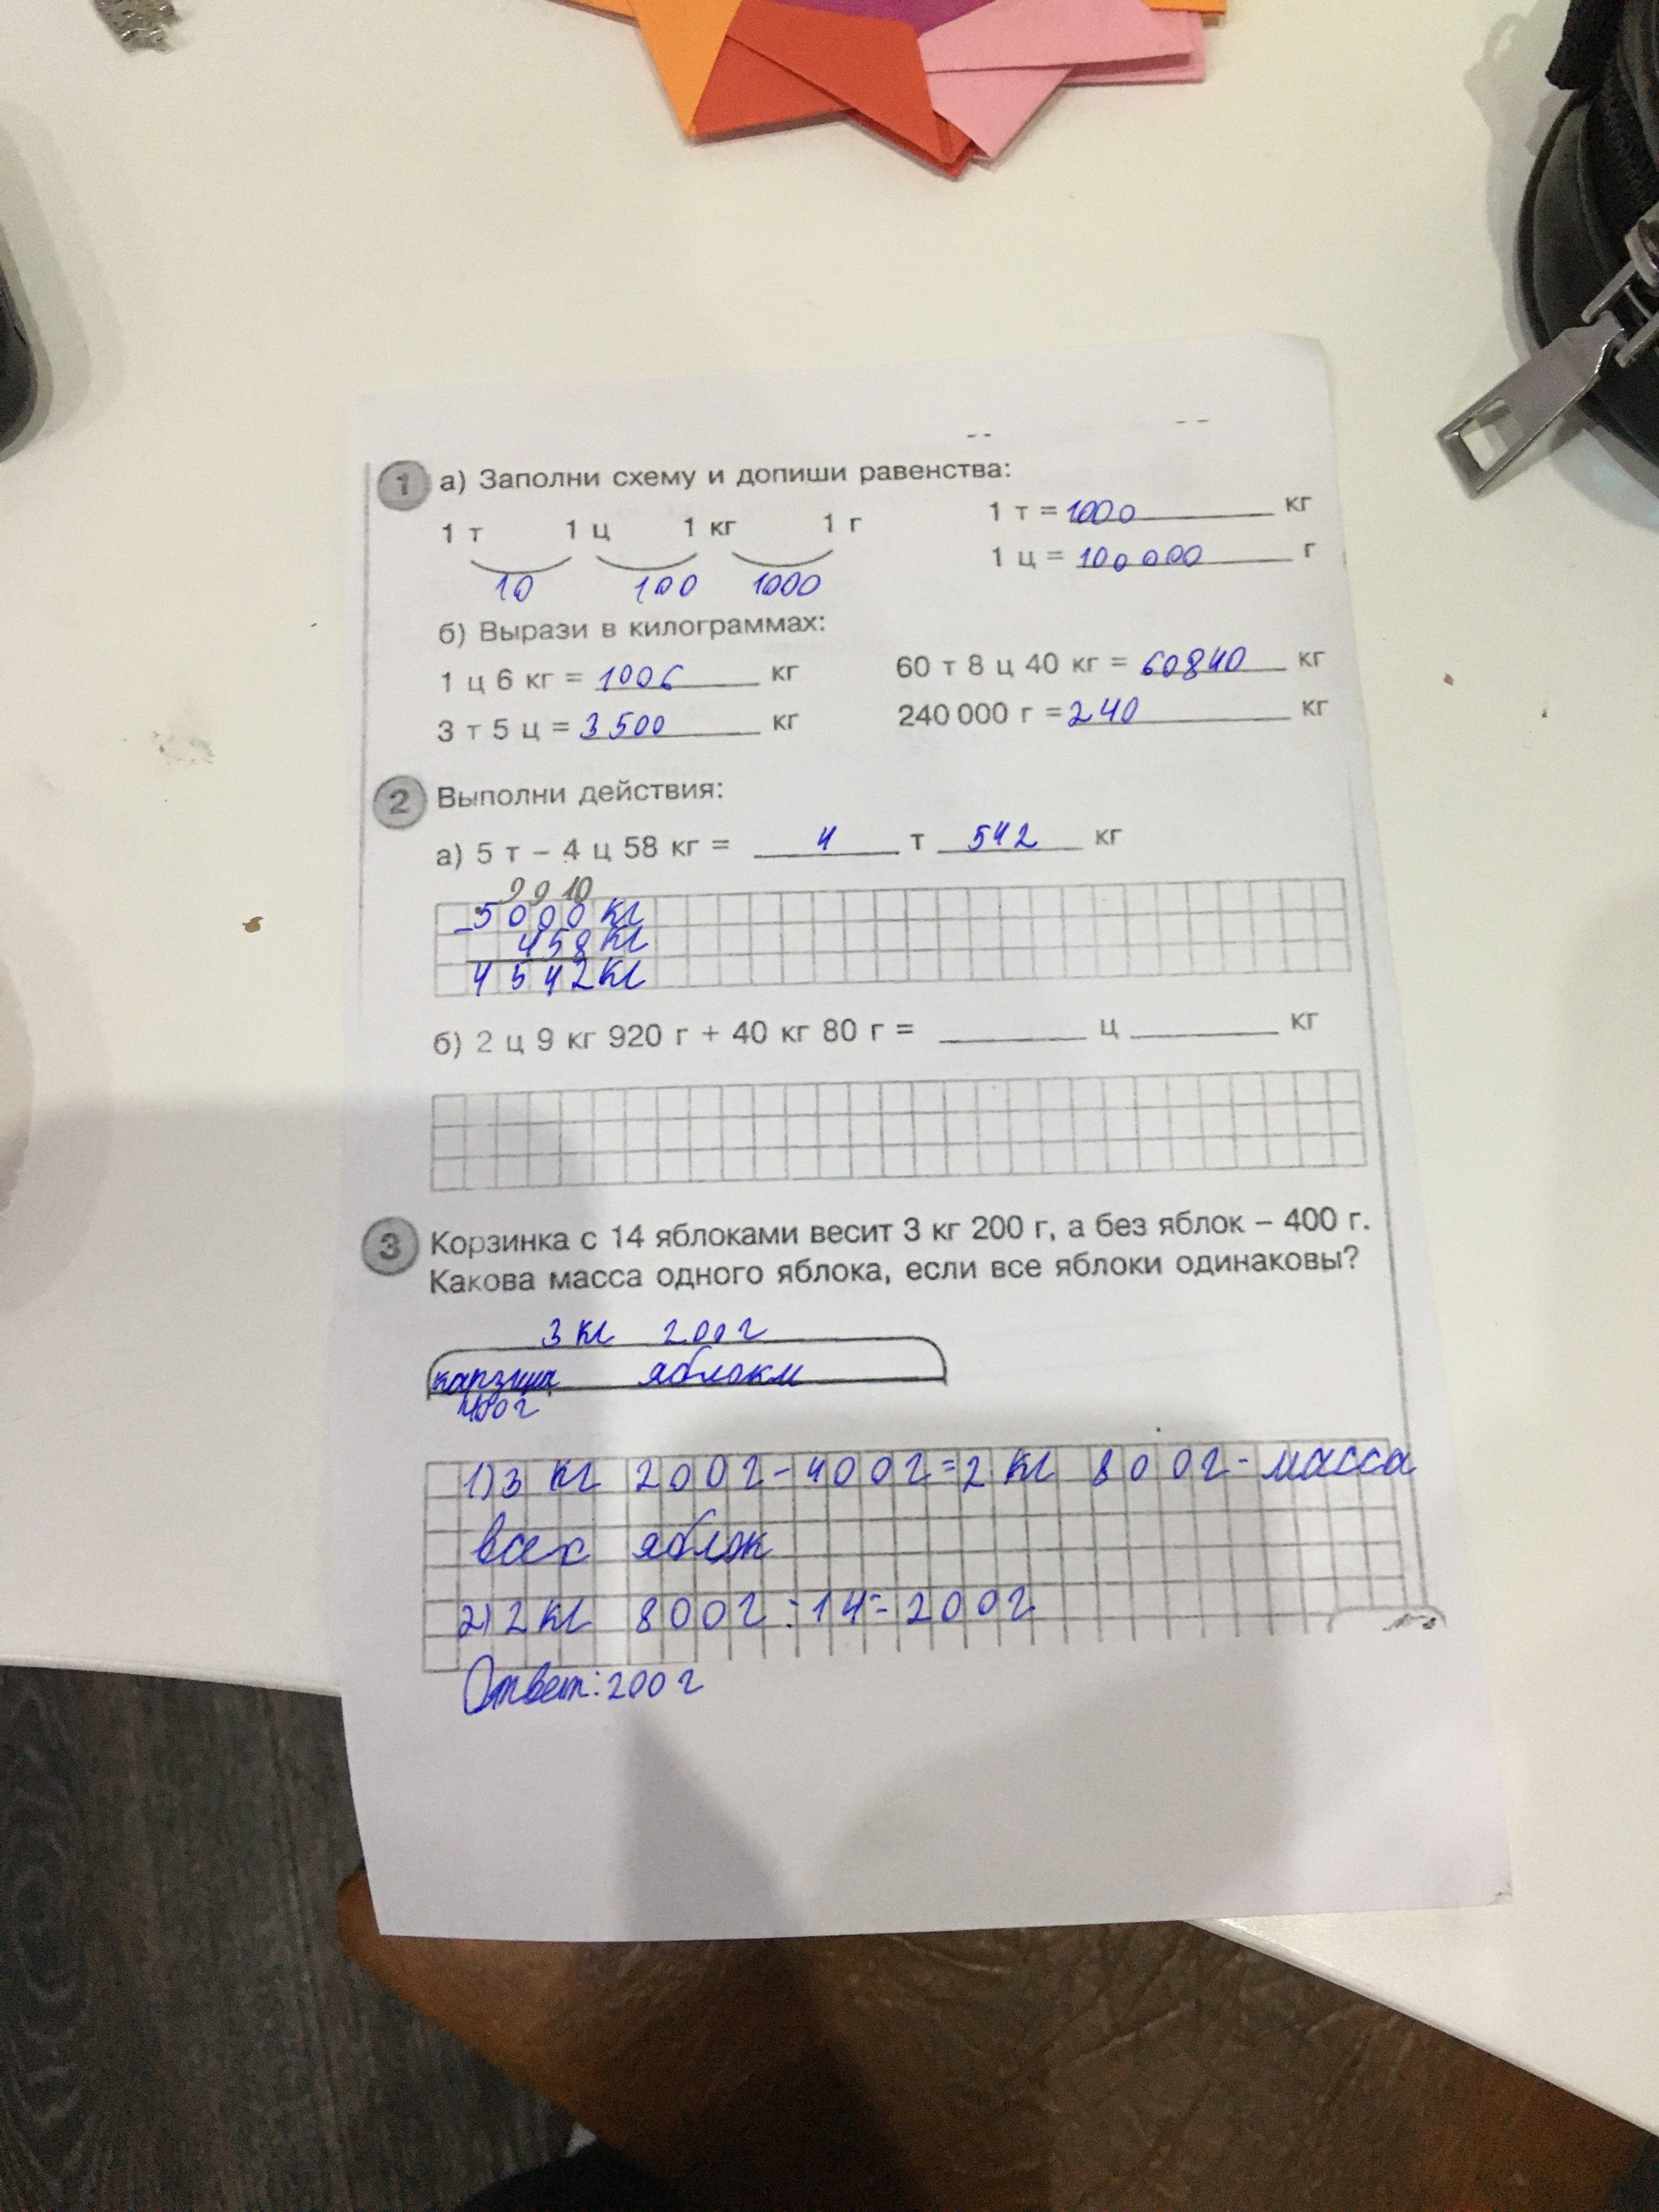 1 а) Заполни схему и допиши равенства:
1 т 1 ц 1 кг 1 г
10 100 1000
1 т = 1000 кг
1 ц = 100000 г
б) Вырази в килограммах:
1 ц 6 кг = 1006 кг
60 т 8 ц 40 кг = 60840 кг
3 т 5 ц = 3500 кг
240 000 г = 240 кг
2 Выполни действия:
а) 5 т – 4 ц 58 кг = 4 т 542 кг
9 9 10
- 5000 кг
458 кг
4542 кг
б) 2 ц 9 кг 920 г + 40 кг 80 г = ц кг
3 Корзинка с 14 яблоками весит 3 кг 200 г, а без яблок – 400 г.
Какова масса одного яблока, если все яблоки одинаковы?
3 кг 200 г
карзина яблоки
400 г
1) 3 кг 200 г - 400 г = 2 кг 800 г - масса
всех яблок
2) 2 кг 800 г : 14 = 200 г
Ответ: 200 г